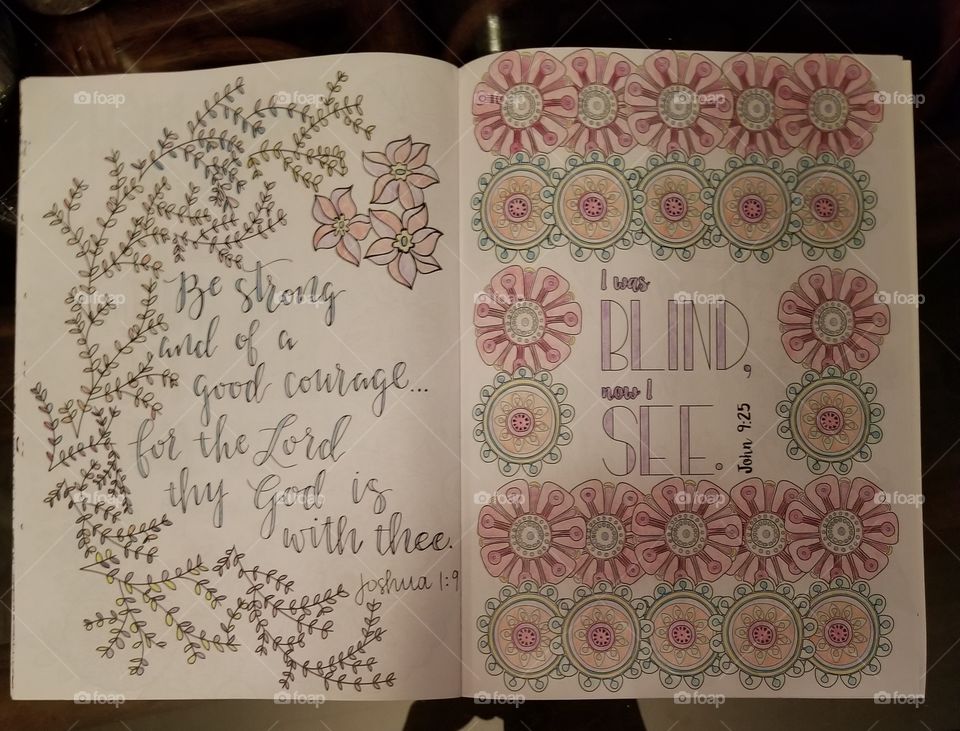 Be strong
and of a
good courage...
for the Lord
thy God is
with thee.
Joshua 1:9
I was
BLIND,
now I
SEE.
John 9:25
foap